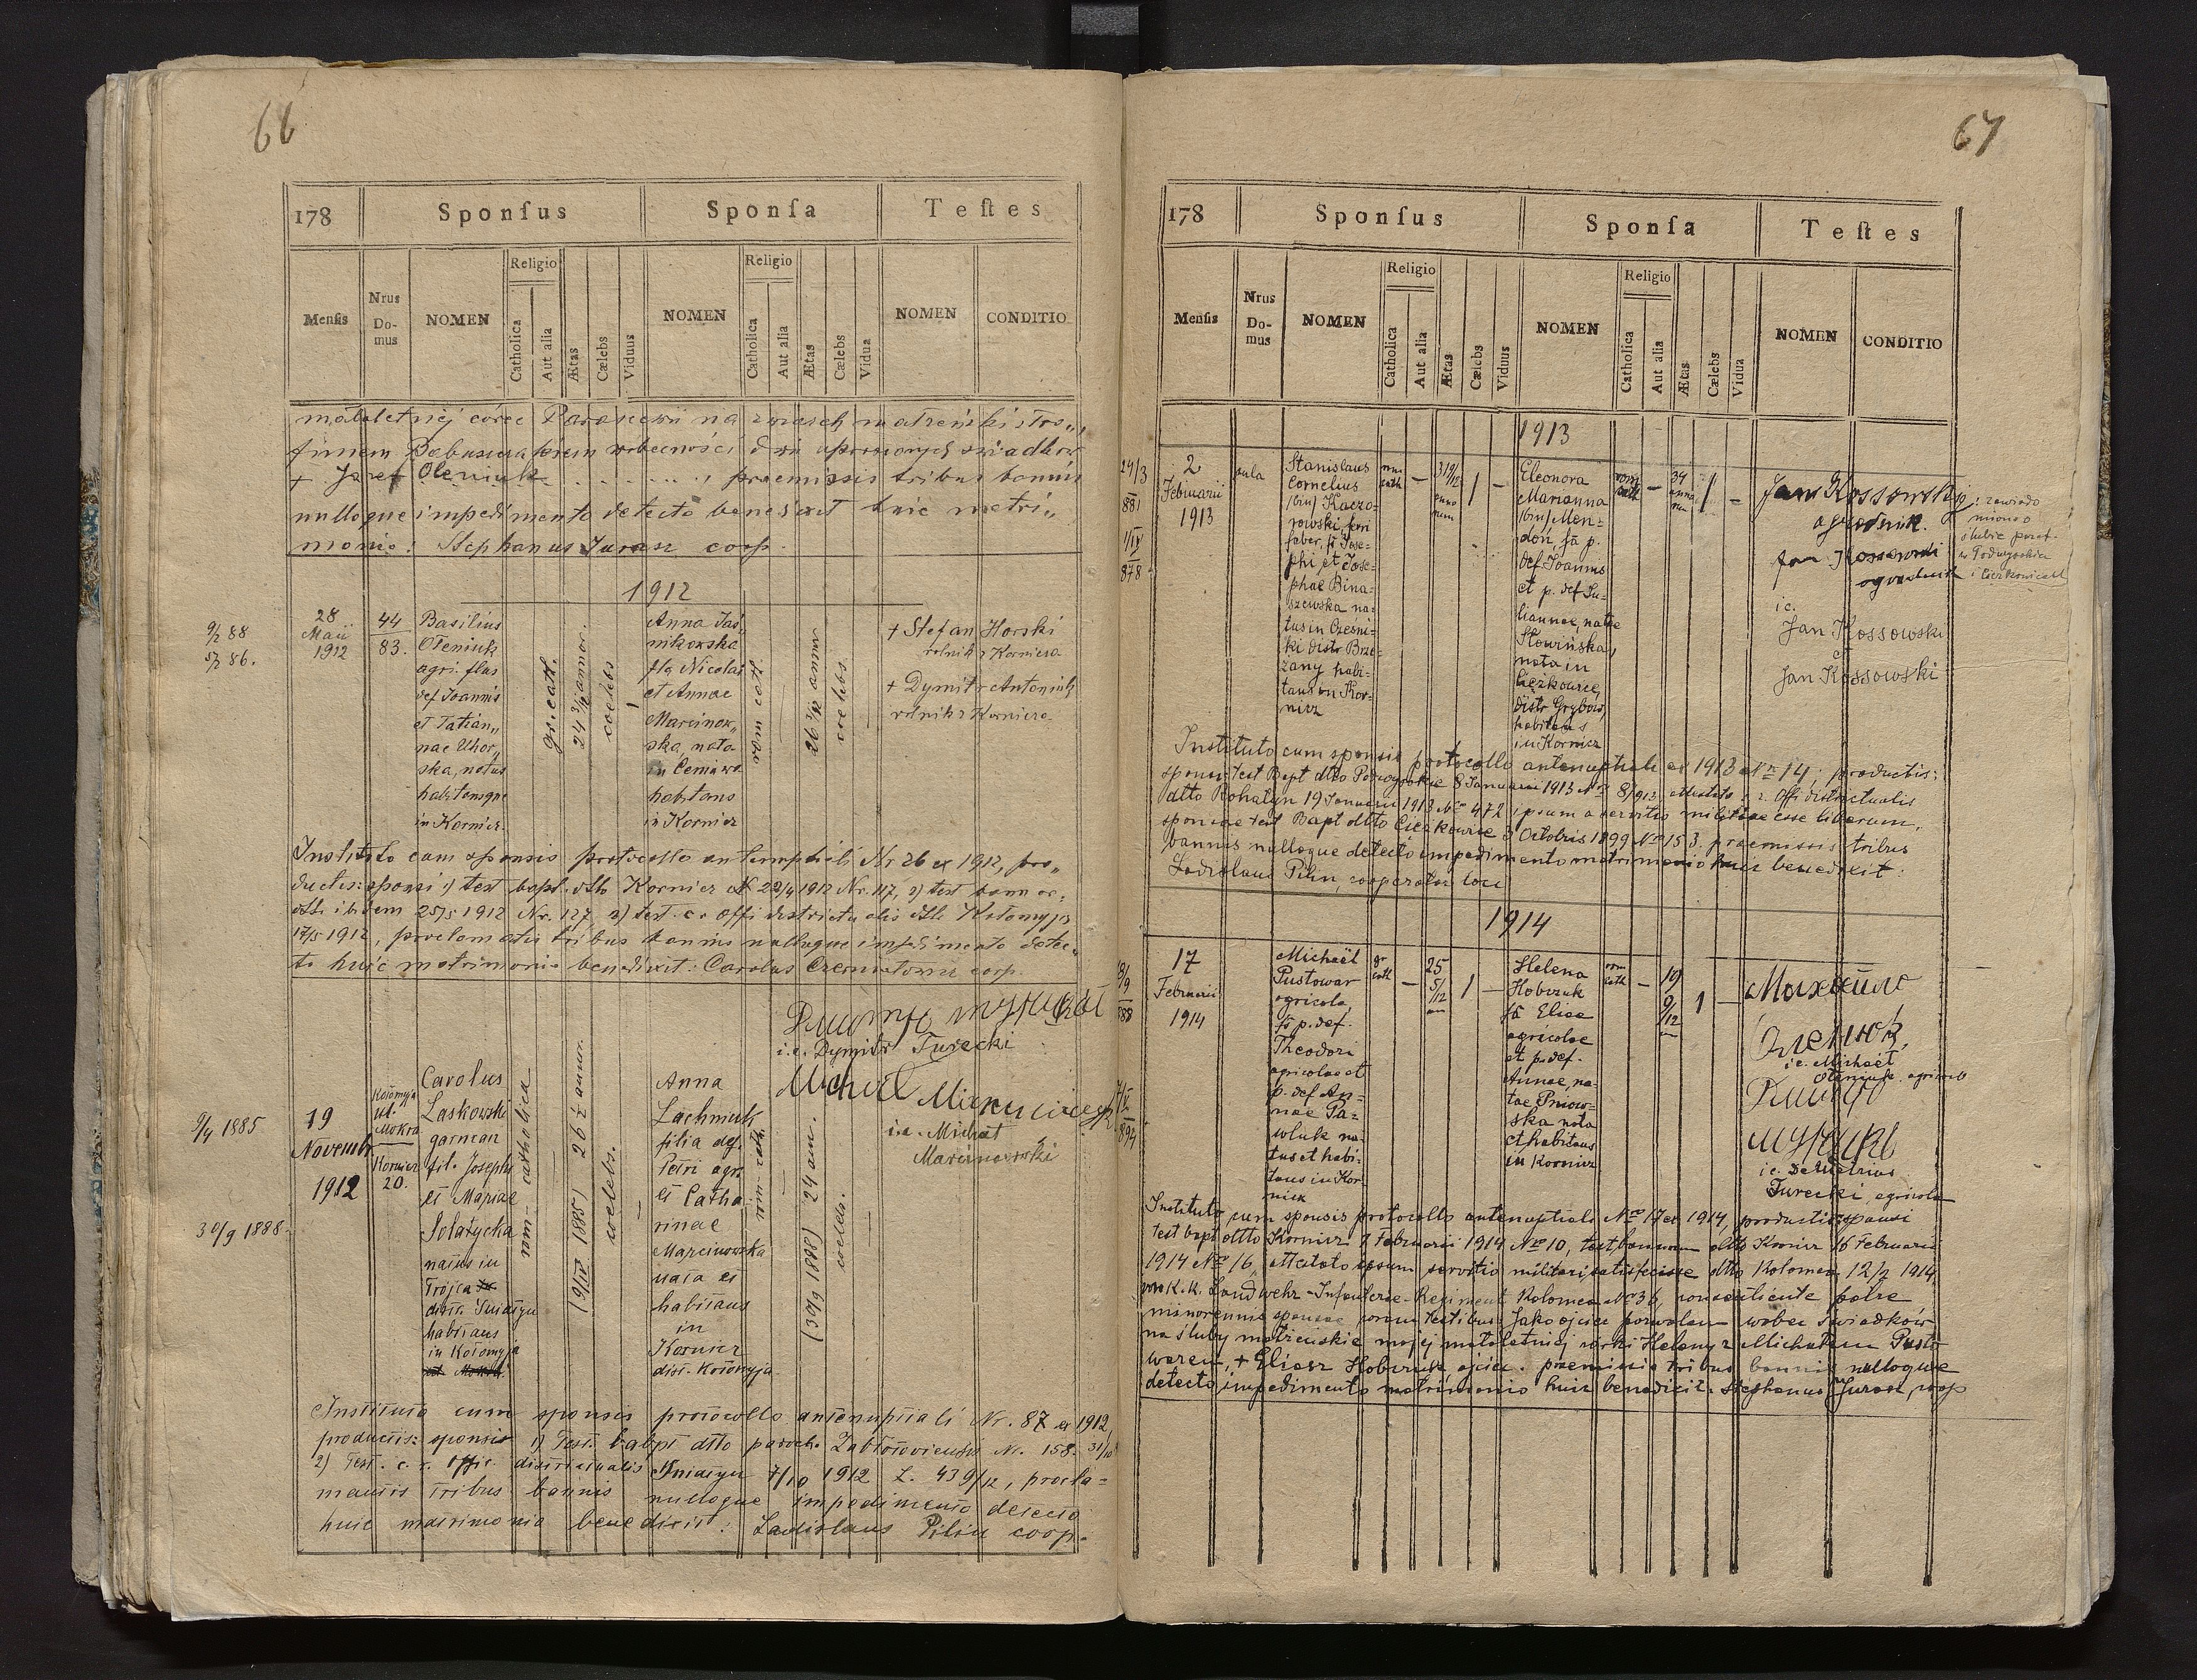 66
178
Sponſus
Sponſa
Teſtes
Menſis
Nrus Domus
NOMEN
Religio
Catholica
Aut alia
Ætas
Cælebs
Viduus
NOMEN
Religio
Catholica
Aut alia
Ætas
Cælebs
Vidua
NOMEN
CONDITIO
małoletniej córce
+ Józef Oleniuk . . . . . . , praemissis tribus bannis
nulloque impedimento detecto benedixit huic matri„
monio: Stephanus Jurasz coop.
1912
9/2 88
5/2 86.
28
Maii
1912
44
83.
Basilius
Oleniuk
agri. flus
def Joannis
et Tatian„
nae Uhor„
ska, natus
habitansque
in Kornicz.
gr. cath.
24 3/12 annor.
coelebs
1
Anna Jaś
nikowska
fla Nicolai
et Annae
Marcinow„
ska, nata
in Ceniawa
habitans
in Kornicz
rom cath.
26 3/12 annor
coelebs
+ Stefan Horski
rolnik z Kornicza
+ Dymitr Antoniuk
rolnik z Kornicza
Instituto cum sponsis protocollo antenuptiali Nr 26 ex 1912, pro„
ductis: sponsi 1) test bapt. dtto Kornicz 22/4 1912 Nr. 117, 2) test bann or.
dtto ibidem 25/5 1912 Nr. 127, 3) test. c. r. offi districtualis dtto Kołomyja
17/5 1912, proclamatis tribus bannis nulloque impedimento detec„
to huic matrimonio benedixit: Carolus
coop.
9/4 1885
30/9 1888.
19
Novembr.
1912
Kołomyja
ul.
Mokra
Kornicz
20.
Carolus
Laskowski
garncarz
fil. Josephi
et Mariae
Solatycka
natus in
Trójca
distr. Śniatyn
habitans
in Kołomyja
rom-catholica
26 ½ annor.
(9/IV 1885)
coelebs.
Anna
Lachniuk
filia def.
Petri agr.
et Catha
rinae
Marcinowska
nata et
habitans
in
Kornicz
distr. Kołomyja.
rom-cath.
24 ann.
(30/9 1888)
coelebs.
i.e. Dymitr Turecki
i.e. Michał
Marcinowski
Instituto cum sponsis protocollo antenuptiali Nr. 87 ex 1912,
productis: sponsis 1) Test. bapt dtto paroch. Zabłotoviensis N. 158. 31/10
2) Test. c. r. offic. districtualis Śniatyn 7/10 1912 L. 439/12, procla=
matis tribus bannis nulloque impedimento detecto
huic matrimonio benedixit: Ladislaus Pilin coop.
67
178
Sponſus
Sponſa
Teſtes
Menſis
Nrus Domus
NOMEN
Religio
Catholica
Aut alia
Ætas
Cælebs
Viduus
NOMEN
Religio
Catholica
Aut alia
Ætas
Cælebs
Vidua
NOMEN
CONDITIO
1913
24/3
881
1/IV
878
2
Februarii
1913
aula
Stanislaus
Cornelius
/bin/ Kaczo-
rowski, ferri
faber, fs Jose-
phi et Jose-
phae Bina-
szewska na-
tus in Czesni-
ki distr Brze-
żany habi-
tans in Kor-
nicz
rom
cath
31 9/12
anno
rum
1
Eleonora
Marianna
/bin/ Men=
doń, fa p.
def Joannis
et p. def Ju-
liannae, natae
Słowińska,
nata in
Ciężkowice,
distr Grybów,
habitans
in Kornicz
rom
cath
34
anno
rum
1
Jan Kossowski
ogrodnik.
Jan Kossowski
ogrodnik
i e.
Jan Kossowski
et
Jan Kossowski
zawiado
miono o
ślubie paraf.
w Podwysokie
i Ciężkowicach
Instituto cum sponsis protocollo antenuptiali ex 1913 Nr 14, productis:
dtto Rohatyn 19 Januarii 1913 No 472 ipsum a servitio militiae esse liberum,
sponsae test Bapt dtto Ciężkowice 3 Octobris 1899 No 153. praemissis tribus
bannis nulloque detecto impedimento matrimonio huic benedixit:
Ladislaus Pilin, cooperator loci
1914
8/9
888
7/V
894
17
Februarii
1914
Michaël
Pustowar
agricola,
fs p. def.
Theodori
agricolae et
p. def An-
nae Pa-
wluk na-
tus et habi-
tans in Kor
nicz
gr
cath
25
5/12
an
1
Helena
Hobczuk
fa Eliae
agricolae
et p. def.
Annae, na-
tae Pniow-
ska nata
et habitans
in Kornicz
rom
cath
19
9/12
an
1
Михайло
Оленюк,
i e. Michaël
Oleniuk, agricola
Дмитро
Турецкі
i e. Demetrius
Turecki, agricola
Instituto cum sponsis protocollo antenuptiali No 17 ex 1914, productis: sponsi
test bapt dtto Kornicz 7 Februarii 1914 No 10, test bannorum dtto Kornicz 16 Februarii
1914 No 16, attestato ipsum servitio militari satisfecisse dtto Kolomea 12/2 1914,
k.k. Landwehr-Infanterie-Regiment Kolomea No 36, consentiente patre
minorennis sponsae coram testibus: Jako ojciec pozwalam wobec świadków
na śluby małżeńskie mojej małoletniej córki Heleny z Michałem Pusto
warem, + Eliasz Hobczuk ojciec. praemissis tribus bannis nulloque
detecto impedimento matrimonio huic benedixit: Stephanus Jurasz, coop